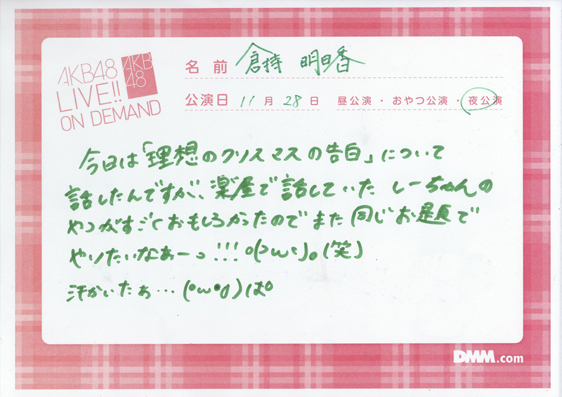 AKB48
LIVE!!
ON DEMAND
AKB
48
名前 倉持 明日香
公演日 11月28日 昼公演・おやつ公演・夜公演
今日は「理想のクリスマスの告白」について
話したんですが、楽屋で話していた しーちゃんの
やつがすごくおもしろかったのでまた同じお題で
やりたいなぁーっ!!!
(笑)
汗かいたぁ…
DMM.com